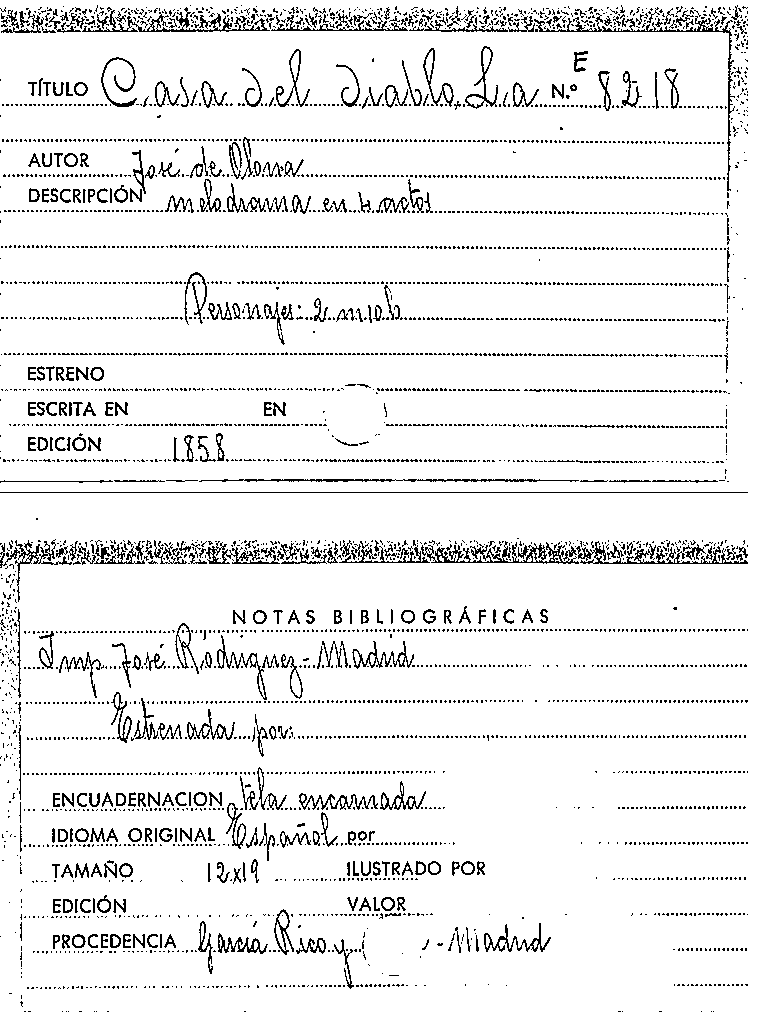 TÍTULO Casa del diablo, La N.º E 8218
AUTOR José de Olona
DESCRIPCIÓN melodrama en 4 actos
Personajes: 2 m 10 h
ESTRENO
ESCRITA EN EN
EDICIÓN 1858
NOTAS BIBLIOGRÁFICAS
Imp José Rodríguez - Madrid
Estrenada por:
ENCUADERNACION tela encarnada
IDIOMA ORIGINAL Español por
TAMAÑO 12x19 ILUSTRADO POR
EDICIÓN VALOR
PROCEDENCIA García Rico y - Madrid